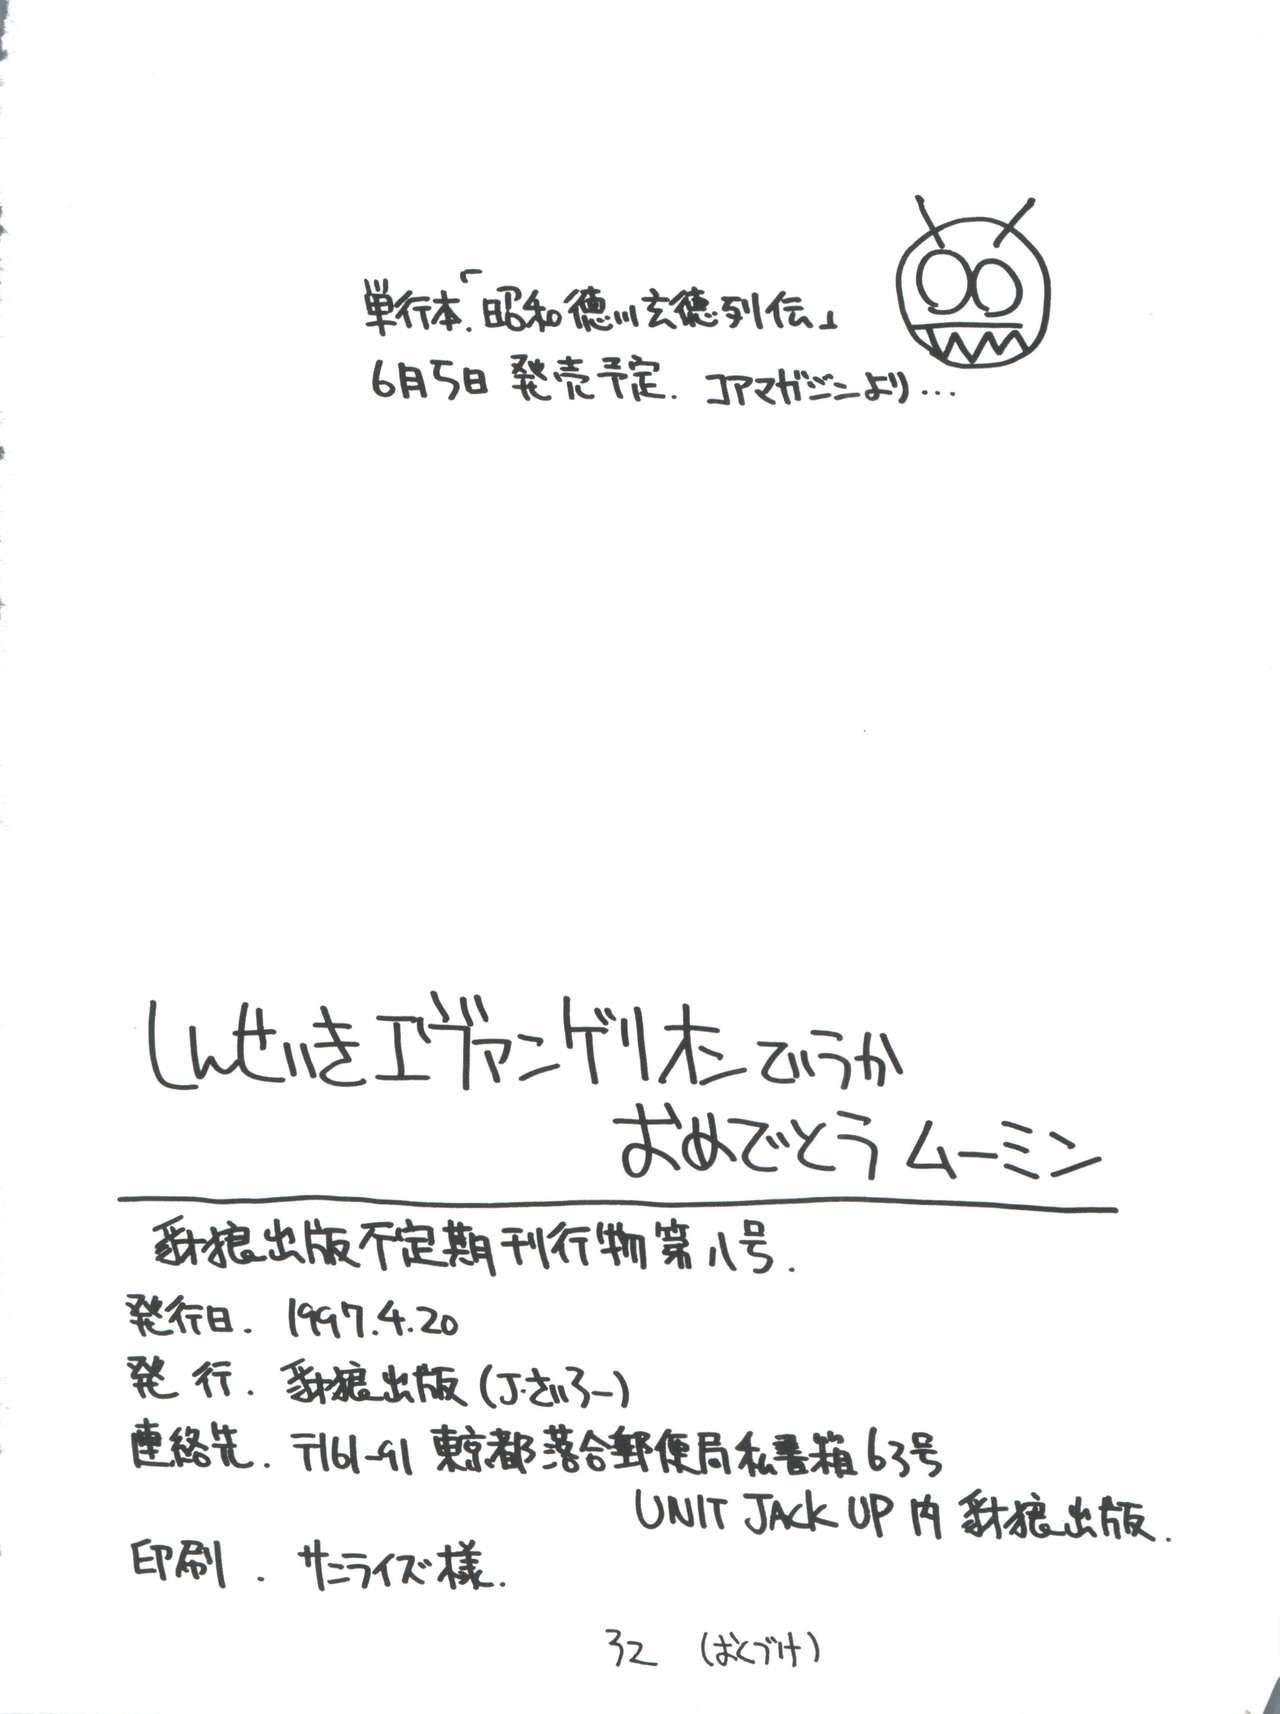 単行本.「昭和徳川玄徳列伝」
6月5日 発売予定. コアマガジンより...
しんせいきエヴァンゲリオンでいうか
おめでとう ムーミン
豺狼出版不定期刊行物第八号.
発行日. 1997.4.20
発 行. 豺狼出版 (J・さいろー)
連絡先. 〒161-91 東京都落合郵便局私書箱63号
UNIT JACK UP 内 豺狼出版.
印刷. サンライズ様.
32 (おくづけ)